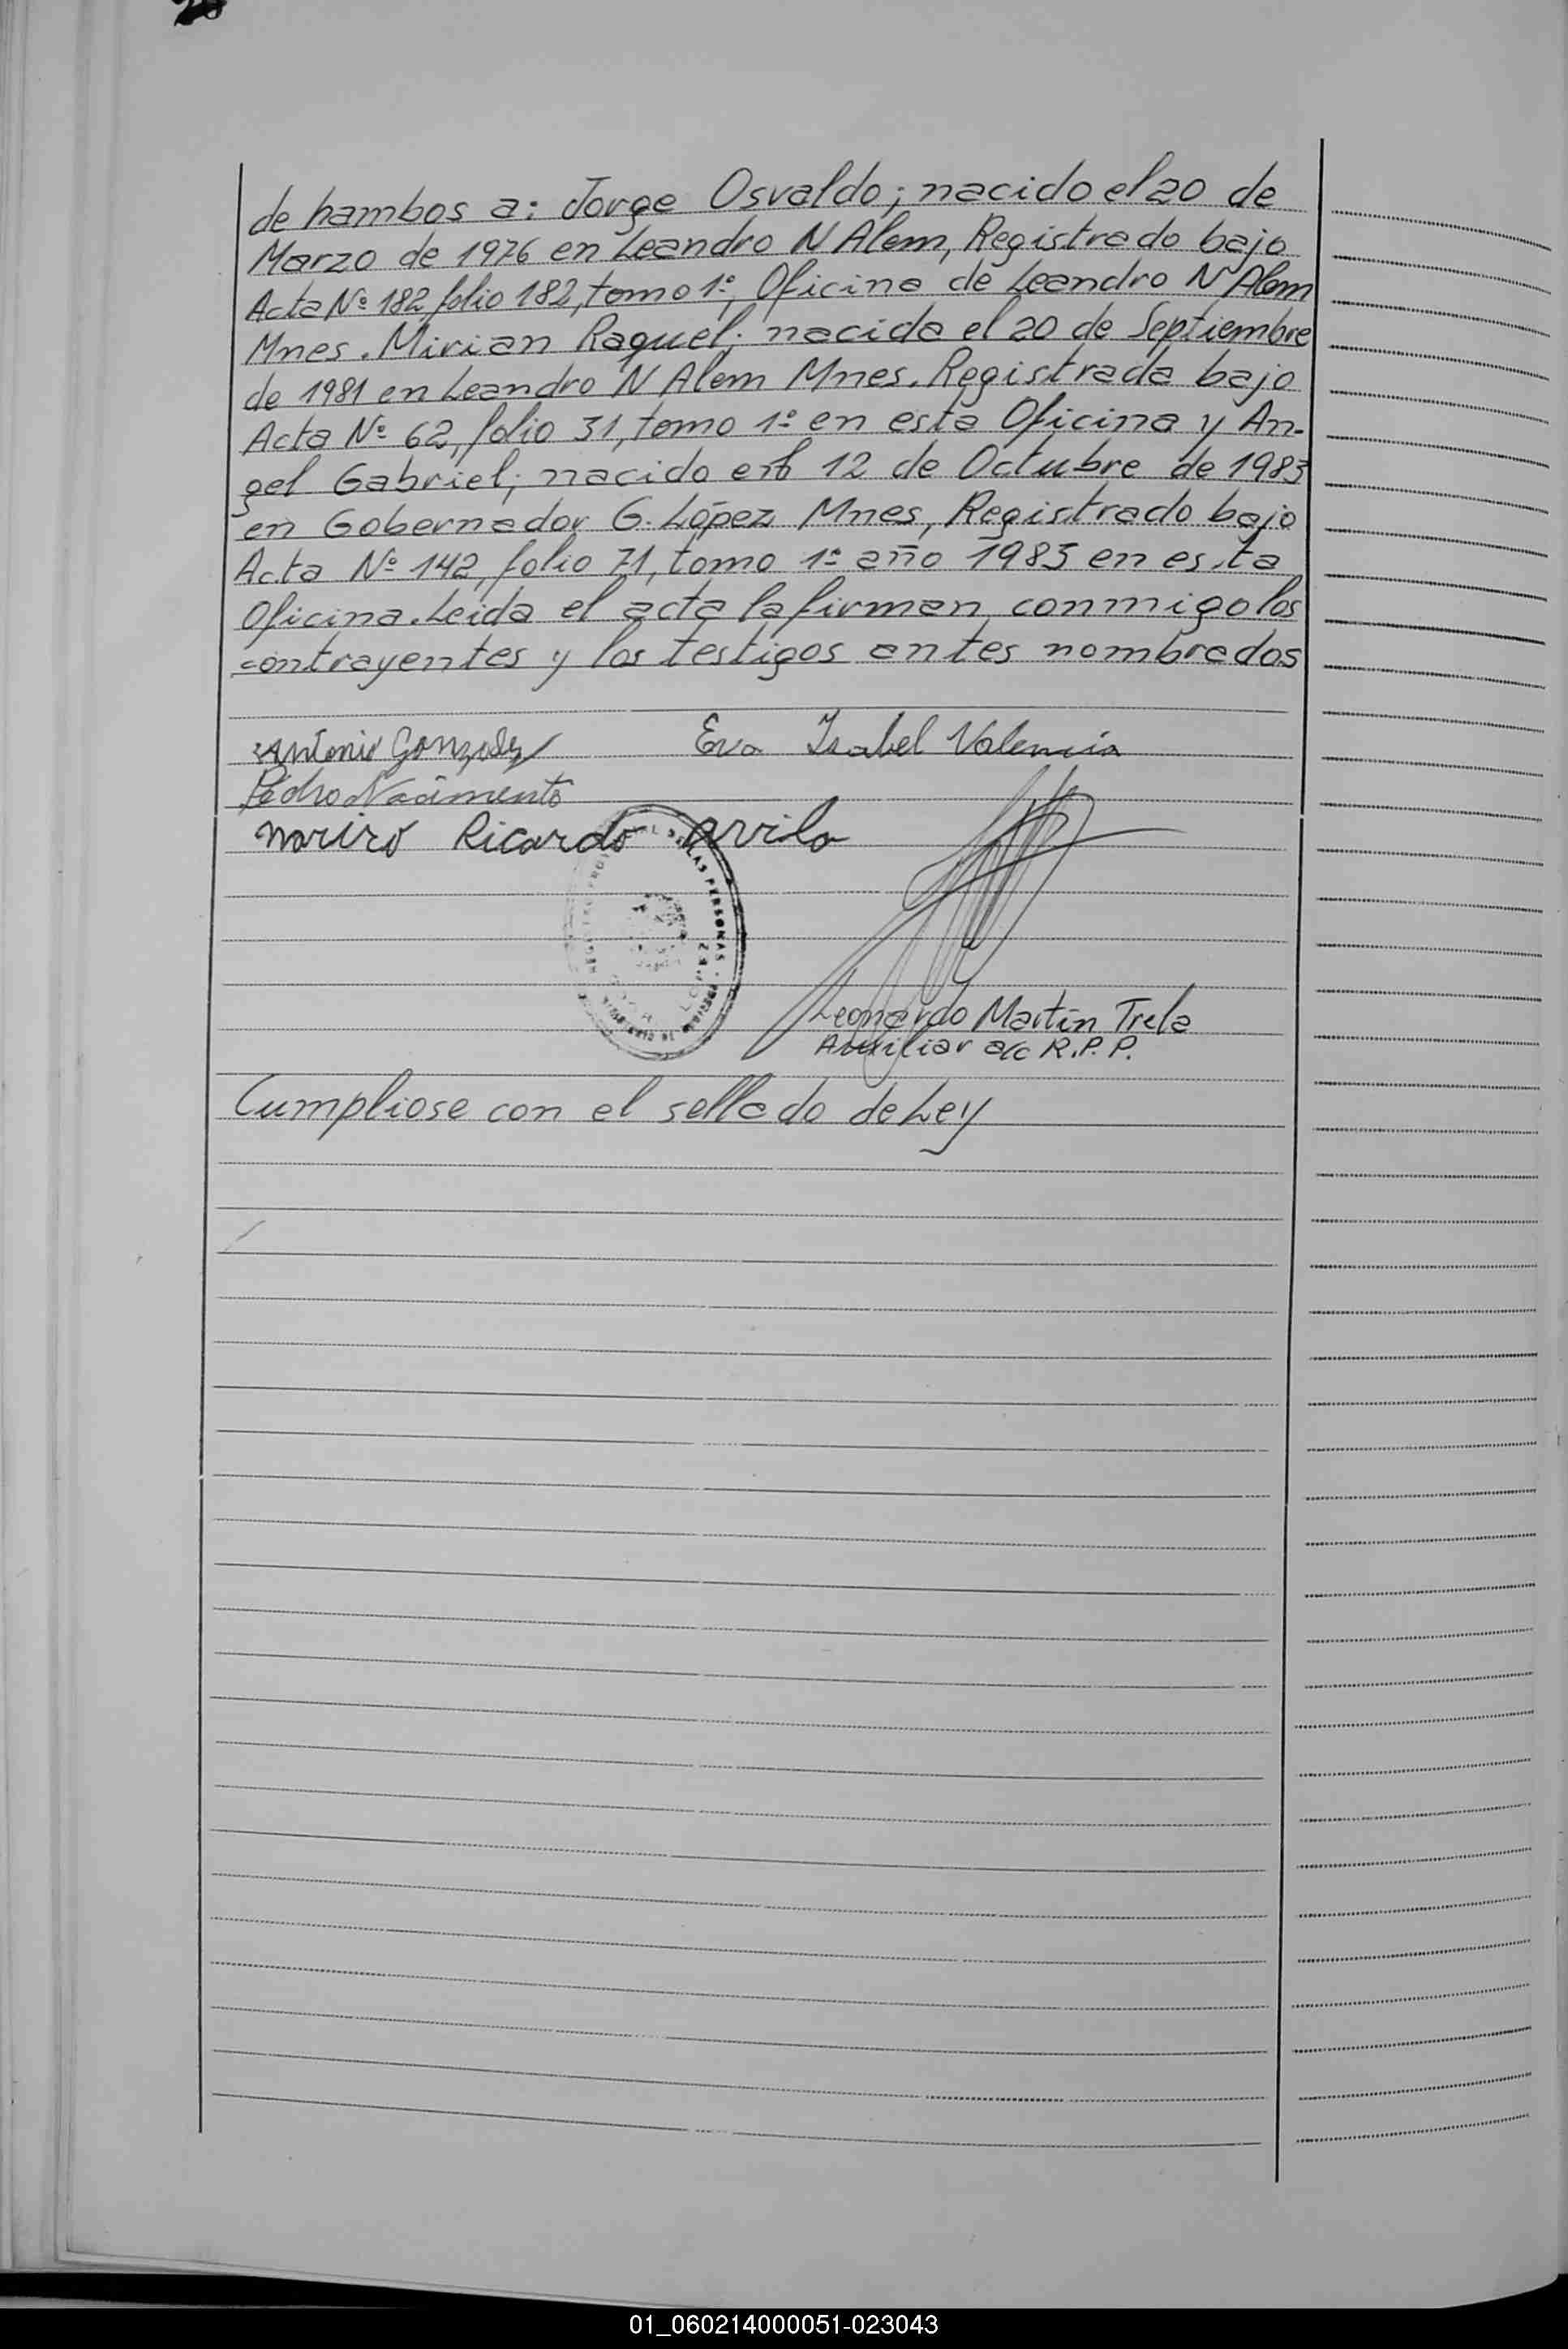 20
de hambos a: Jorge Osvaldo; nacido el 20 de
Marzo de 1976 en Leandro N Alem, Registrado bajo
Acta Nº 182 folio 182, tomo 1º, Oficina de Leandro N Alem
Mnes. Mirian Raquel; nacida el 20 de Septiembre
de 1981 en Leandro N Alem Mnes. Registrada bajo
Acta Nº 62, folio 31, tomo 1º en esta Oficina y An-
gel Gabriel; nacido el 12 de Octubre de 1983
en Gobernador G. López Mnes, Registrado bajo
Acta Nº 142, folio 71, tomo 1º año 1983 en esta
Oficina. Leida el acta la firman conmigo los
contrayentes y los testigos antes nombrados
Antonio Gonzalez Eva Isabel Valencia
Pedro Nacimento
Mariro Ricardo Avila
DE LAS PERSONAS
Leonardo Martín Trela
Auxiliar a/c R.P.P.
Cumpliose con el sellado de Ley
01_060214000051-023043